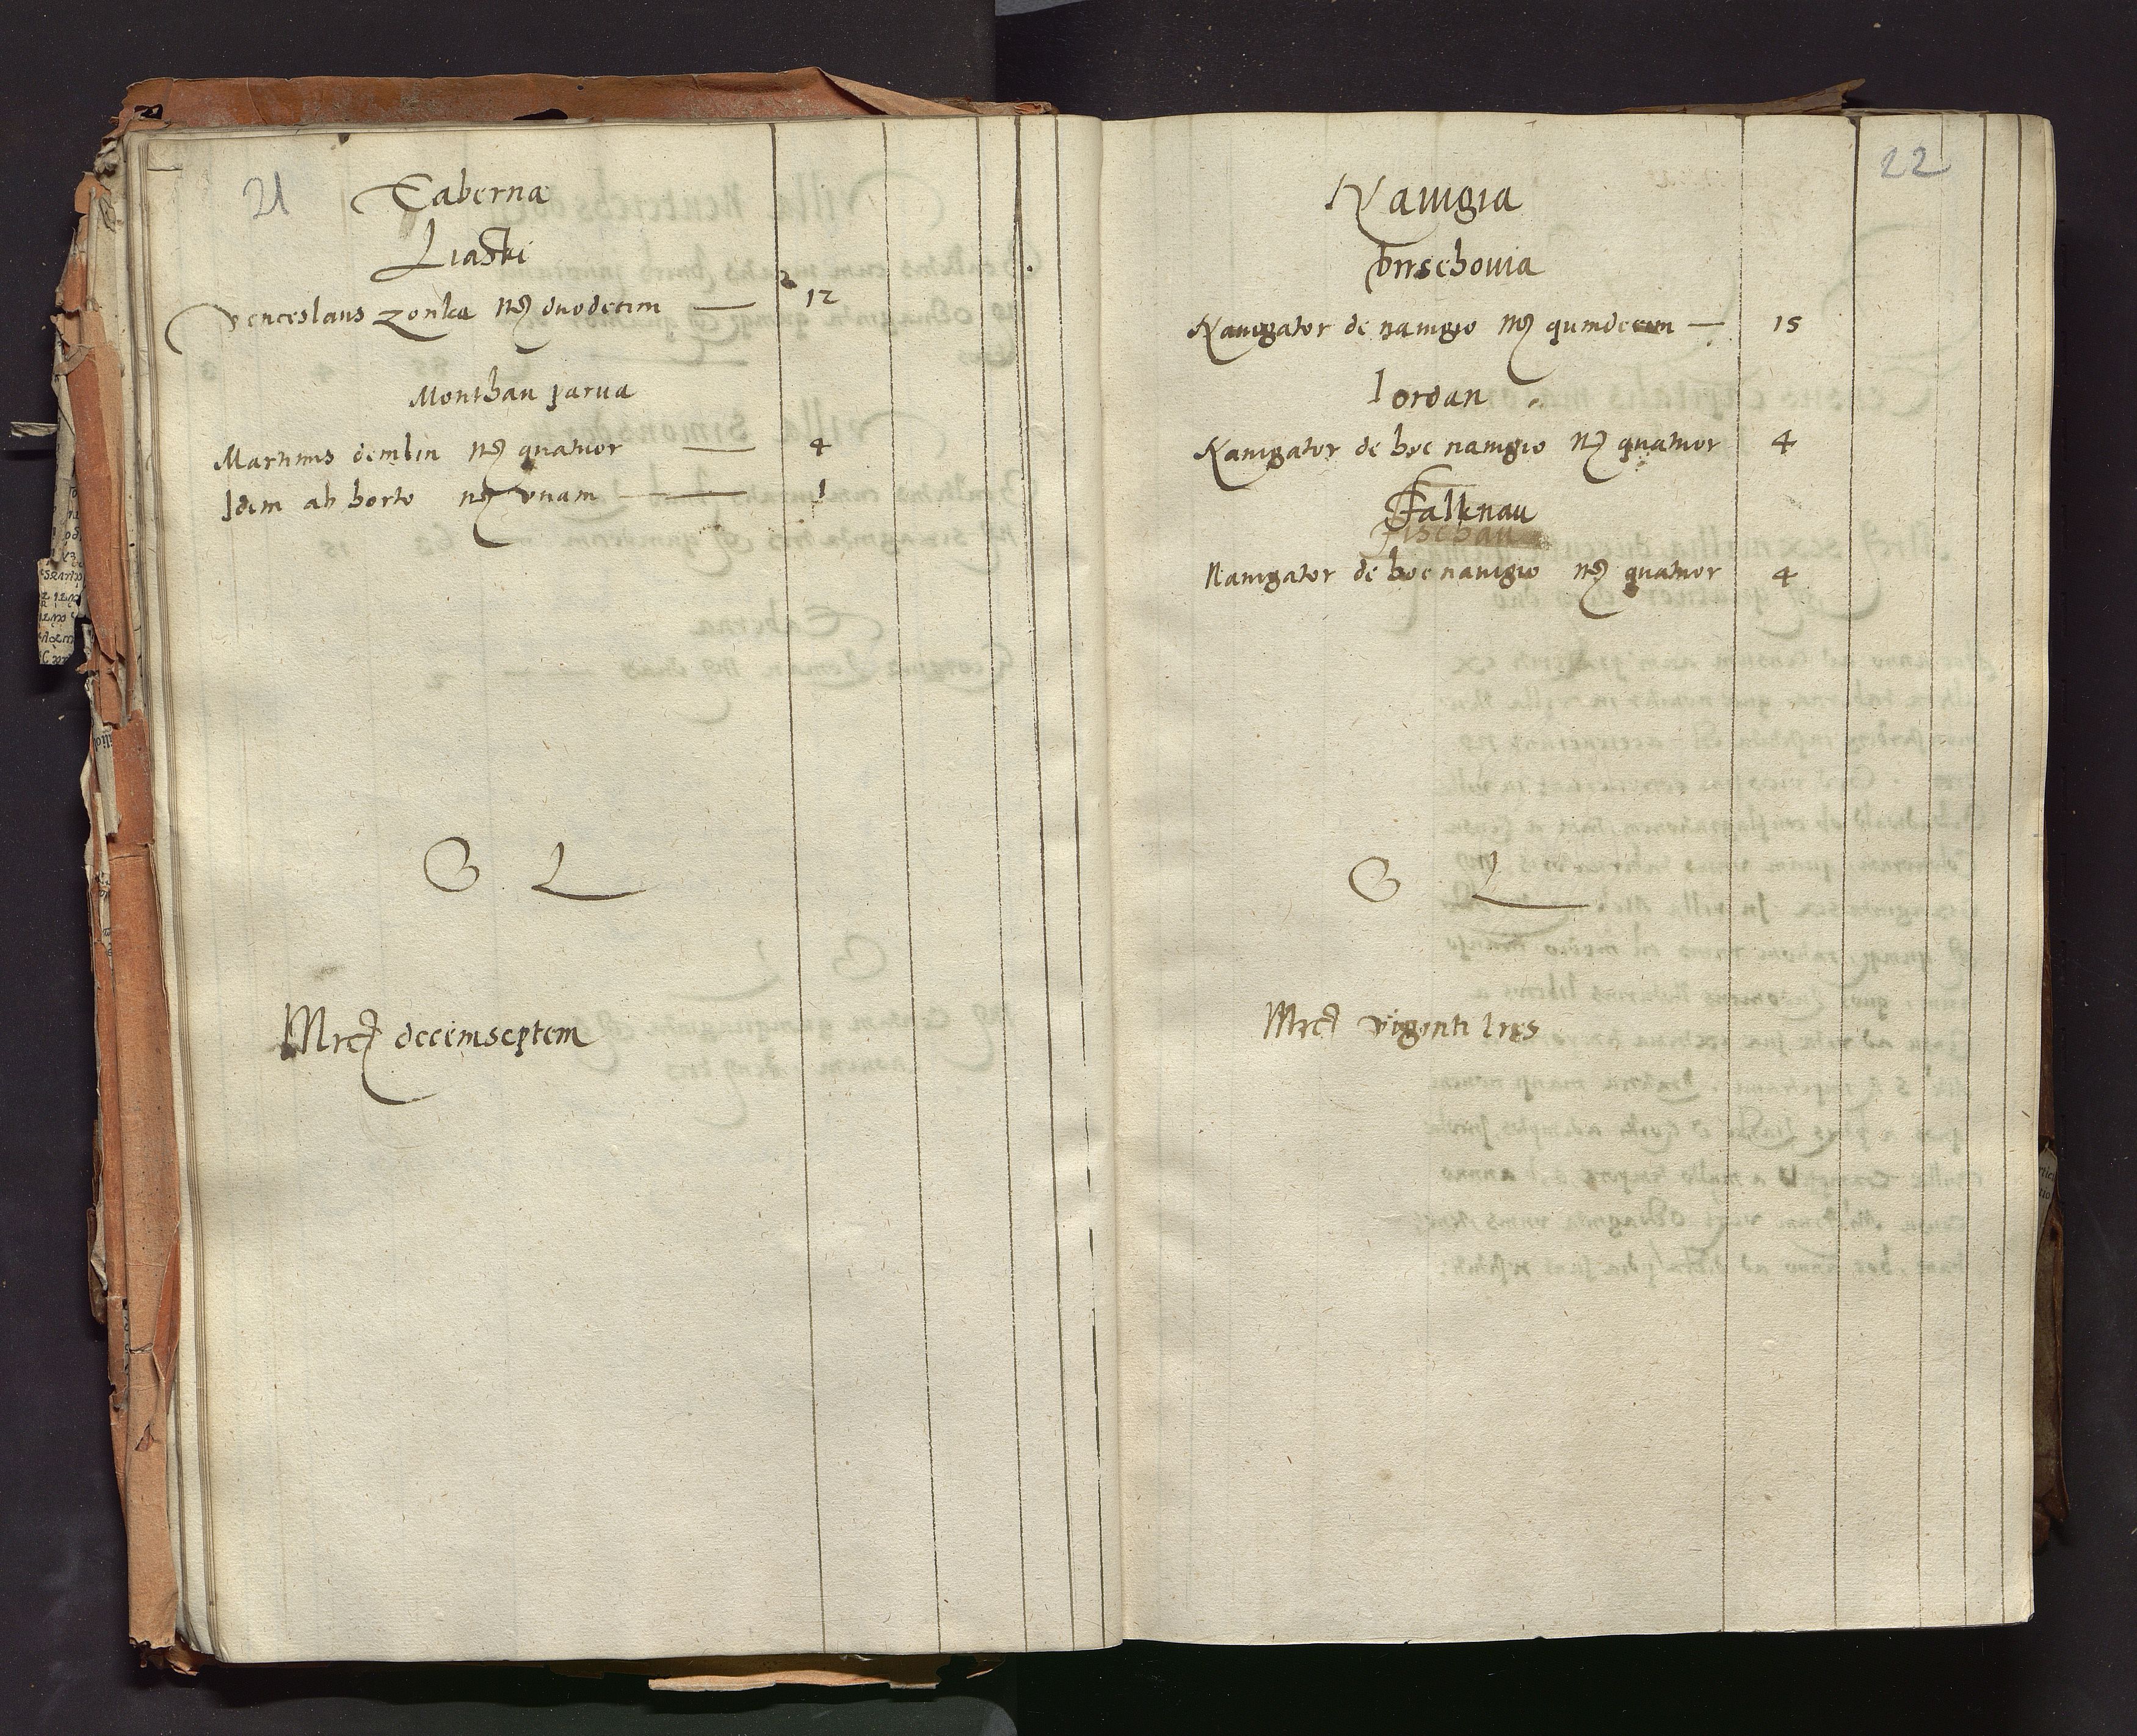 21
Taberna
Liaski
Venceslaus Zonka mrc duodecim — 12
Monthau parua
Martinus demlin mrc quatuor — 4
Idem ab horto mrc vnam — 1
G L
Mrc decemseptem
22
Nauigia
Dirschouia
Nauigator de nauigio mrc quindecim — 15
Iordan
Nauigator de hoc nauigio mrc quatuor 4
Falknau
Nauigator de hoc nauigio mrc quatuor 4
G L
Mrc viginti tres